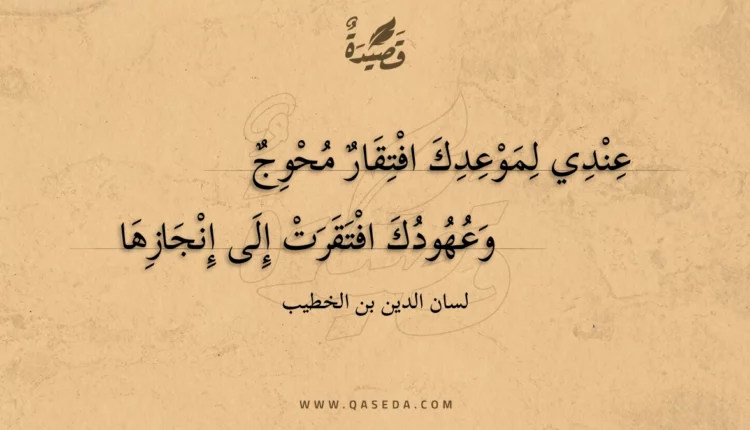 قَصِيدَةٌ
عِنْدِي لِمَوْعِدِكَ افْتِقَارٌ مُحْوِجٌ
وَعُهُودُكَ افْتَقَرَتْ إِلَى إِنْجَازِهَا
لسان الدين بن الخطيب
WWW.QASEDA.COM